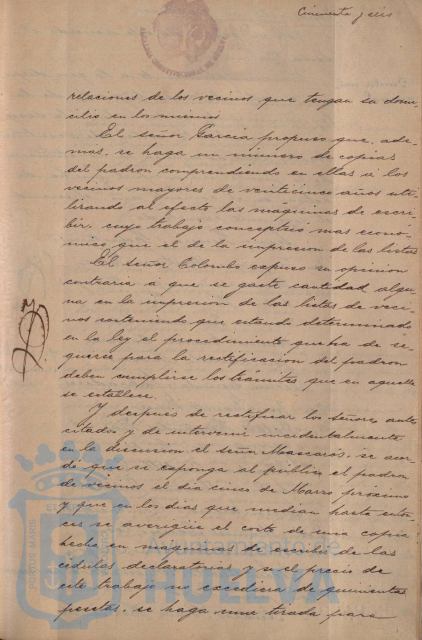 Cincuenta y seis
relaciones de los vecinos que tengan su domi-
cilio en los mismos
El señor García propuso que, ade-
mas, se haga un número de copias
del padron comprendiendo en ellas á los
vecinos mayores de veinticinco años uti-
lizando al efecto las máquinas de escri-
bir, cuyo trabajo conceptuó mas econó-
mico que el de la impresion de las listas
El señor Colombo expuso su opinion
contraria á que se gaste cantidad algu-
na en la impresion de las listas de veci-
nos sosteniendo que estando determinado
en la ley el procedimiento que ha de se-
guirse para la rectificacion del padron
deben cumplirse los trámites que en aquella
se establece.
Y después de rectificar los señores ante
citados y de intervenir incidentalmente
en la discusion el señor Mascarós, se acor-
dó que se exponga al público el padron
de vecinos el dia cinco de Marzo próximo
y que en los dias que median hasta enton-
ces se averigüe el costo de una copia
hecha en máquinas de escribir de las
cédulas declaratorias y si el precio de
este trabajo no excediera de quinientas
pesetas, se haga una tirada para
Ayuntamiento de
HUELVA
PORTUS MARIS